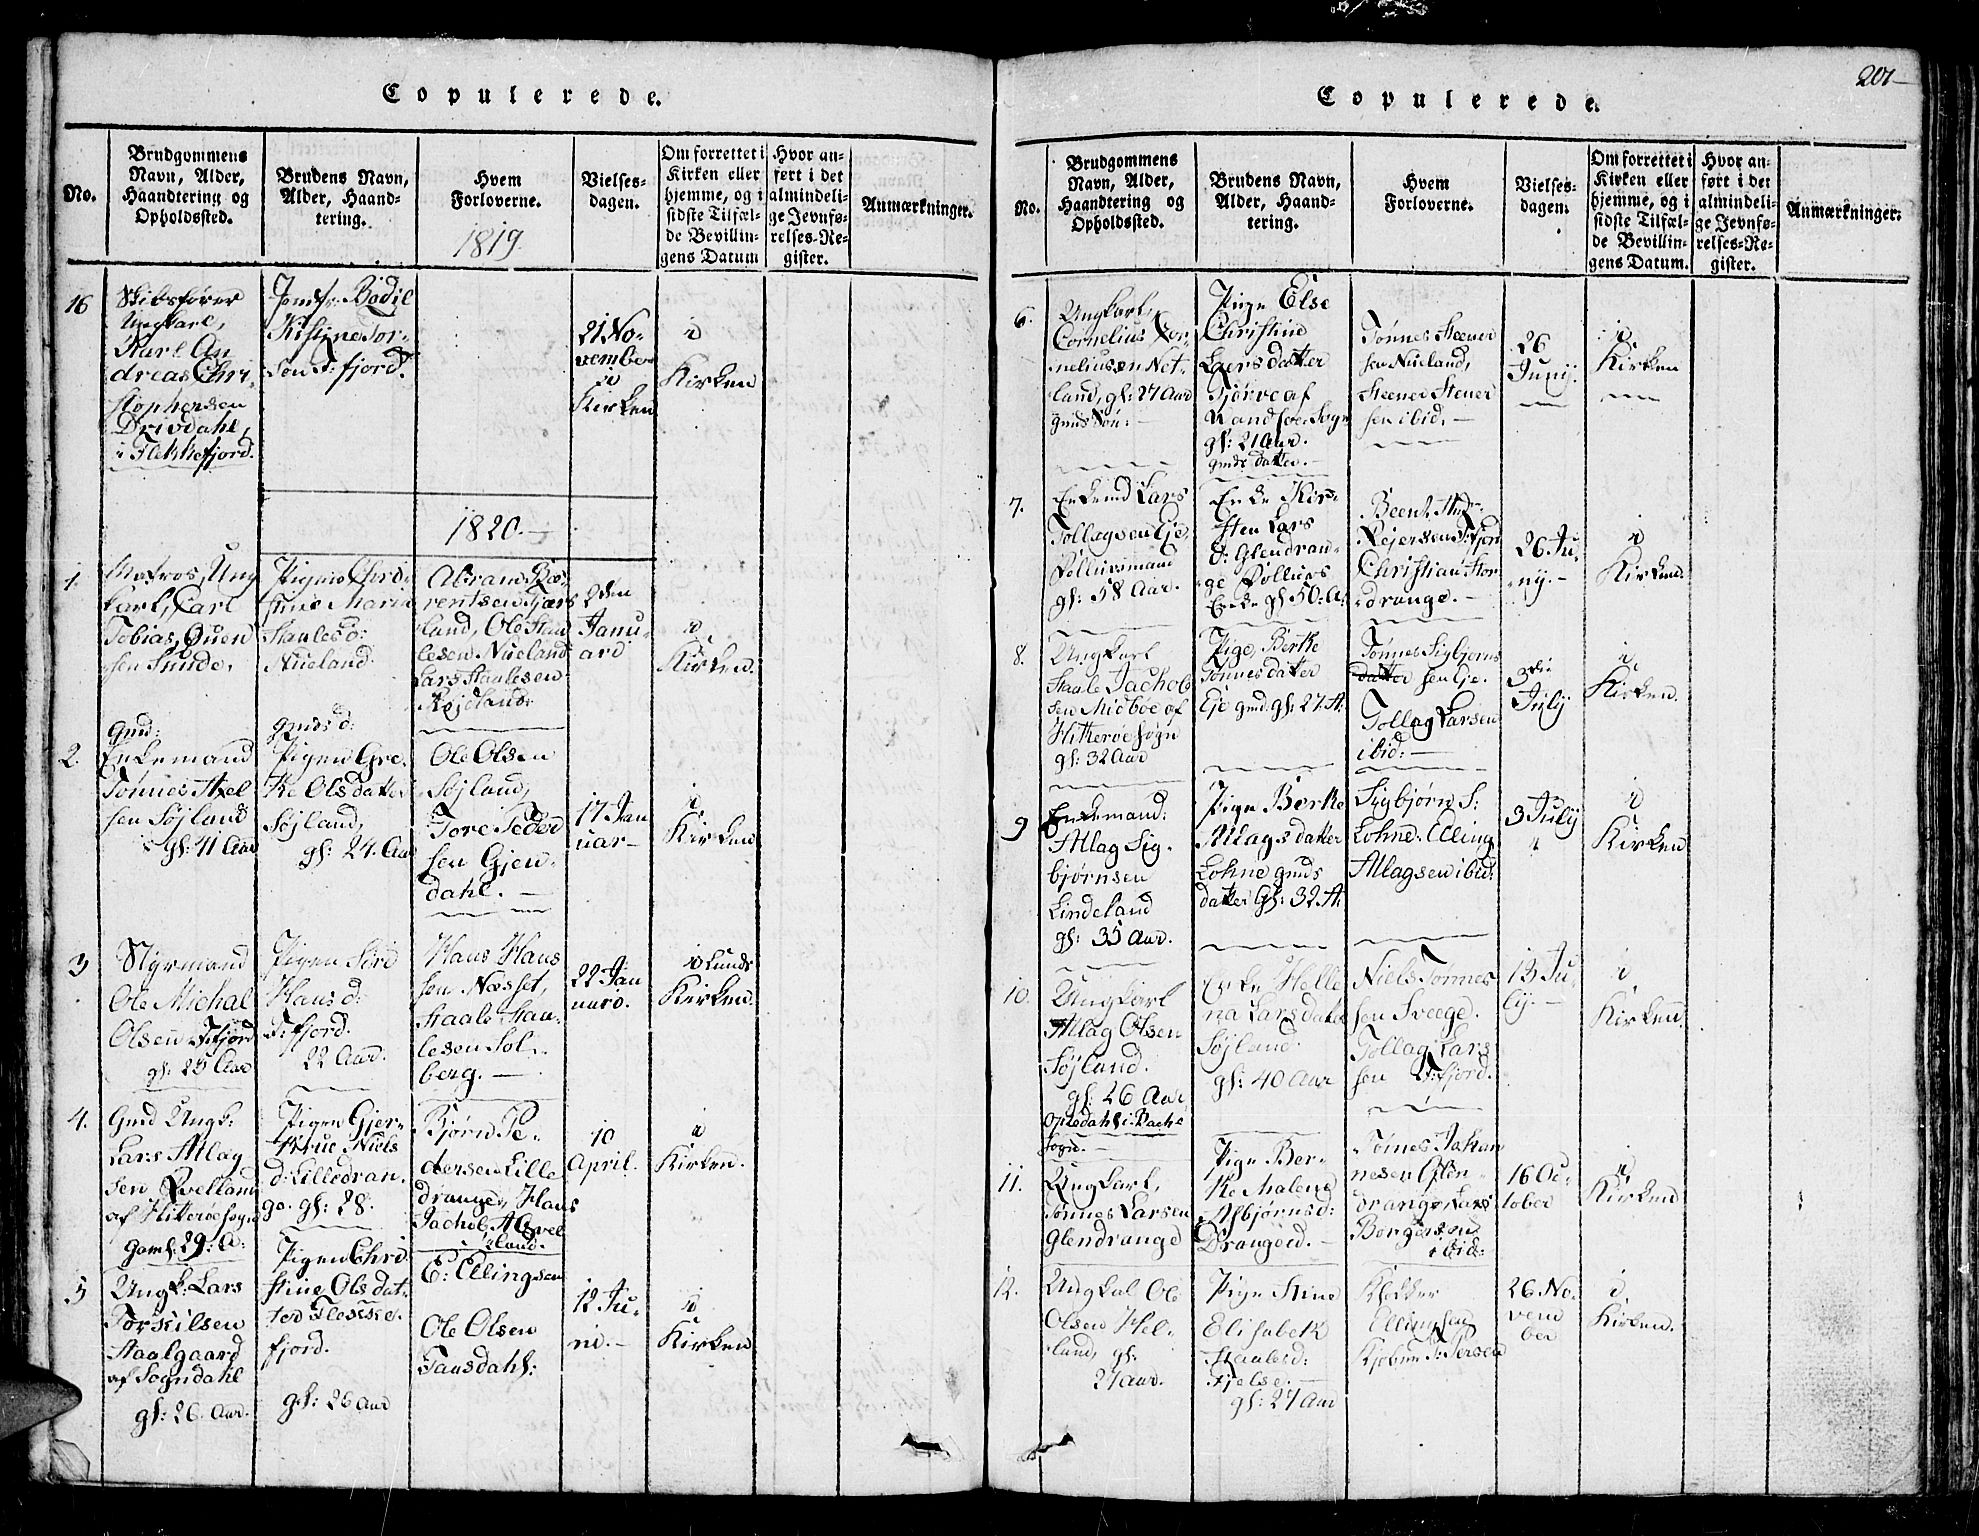 Copulerede.
No.
Brudgommens Navn, Alder, Haandtering og Opholdssted.
Brudens Navn, Alder, Haandtering.
Hvem Forloverne.
1819.
Vielsesdagen.
Om forrettet i Kirken eller hjemme, og i sidste Tilfælde Bevillingens Datum
Hvor anført i det almindelige Jevnførelses-Register.
Anmærkninger.
16
Skibsfører
Ungkarl,
Karl An
dreas Chri-
stophersen
Drivdahl,
i Flekkefjord.
Jomfr: Bodil
Kistine Tor-
sen F:fjord.
21 No-
vember
i
Kirken
i
Kirken
1820.
1.
Matros, Ung
karl, Carl
Tobias, Quen
sen Sunde.
Pigen Chri-
stine Maria
Staalesd:
Nueland.
Abram Be-
rentsen Tjørs
land, Ole Staa
lesen Nueland
Lars Staalesen
2den
Janu-
ard
i
Kirken.
2.
Gmd:
Enkemand
Tønnes Axel
sen Søjland
gl: 41 Aar
gmds d:
Pigen Gre-
the Olsdatter
Søjland,
gl: 24. Aar
Ole Olsen
Søjland,
Tore Peder
sen Gjen-
dahl.
17 Jan
uar
i
Kirken
3
Styrmand
Ole Michal
Olsen F:fjord
gl: 25 Aar
Pigen Sird
Hans d:
F:fjord.
22 Aar.
Hans Hans
sen Næsset,
Staale Staa-
lesen Sol-
berg.
22 Jan
uard.
i Lunds
Kirken.
4.
Gmd Ungk:
Lars Atlag
sen Qvelland
af Hitterøe sogn
Gaml: 29: A:
Pigen Gjer-
thrue Niels
d: Lilledran-
ge. gl: 28.
Bjørn Pe-
dersen Lille
drange, Hans
Jachob: Abvel
land.
10
April.
i
Kirken.
5
Ungk: Lars
Torkilsen
Aaalgaard
af Sogndahl
gl: 26. Aar.
Pigen Chri
stine Olsdat-
ter Flekke-
fjord.
gl: 26 Aar
E: Ellingsen
Ole Olsen
Tansdahl:
12 Ju-
nii.
i
Kirken
201
Copulerede.
No.
Brudgommens Navn, Alder, Haandtering og Opholdssted.
Brudens Navn, Alder, Haandtering.
Hvem Forloverne.
Vielsesdagen.
Om forrettet i Kirken eller hjemme, og i sidste Tilfælde Bevillingens Datum.
Hvor anført i det almindelige Jevnførelses-Register.
Anmærkninger.
6.
Ungkarl,
Cornelius Cor-
neliussen Net-
land, gl: 27 Aar
gmds Søn.
Pige Else
Christine
Larsdatter
Tjørve af
Nandsøe Sogn
gl: 21 Aar.
gmds datter.
Tønnes Steener
sen Nueland,
Steener Steener
sen ibid.
26
Junij.
i
Kirken
7.
Enkemd Lars
Tollagsen Eje,
Føllursmand
gl: 58 Aar.
Enke Kir-
sten Lars
d: Glendran-
ge Føllurs
Enke gl 50: A:
Beent And-
Rejersen F:fjor
Christian Stor
drange.
26 Ju-
nij.
i
Kirken.
8.
Ungkarl
Staale Jachob
sen Midboe af
Hitterøe sogn
gl: 32 Aar
Pige, Berthe
Tønnesdatter
Eje gmd. gl: 27. A:
Tønnes Sigbjørns
datter sen Eje.
Tollag Larsen
ibid:
3die
Julij
i
Kirken.
9
Enkemand:
Atlag Sig-
bjørnsen
Lindeland
gl: 35 Aar.
Pige Berthe
Atlagsdatter
Lohne gmds
datter Gl: 32. A.
Sigbjørn S:
Lohne: Elling
Atlagsen ibid:
3 Julij
i
Kirken
10.
Ungkarl
Atlag Olsen
Søjland.
gl: 26 Aar
Opsedahl i Bache
sogn.
Enke Helle
na Larsdatter
Søjland.
gl: 40 Aar
Niels Tønnes
sen Sveege.
Tollag Lars
sen F:fjord.
13 Ju-
lij.
i
Kirken.
11.
Ungkarl,
Tønnes Larsen
Glendrange
Pige Ber-
the Malene
Asbjørnsd:
Drangeid.
Tønnes Johan
nesen Glen-
drange, Lars
Børgesen
ibid:
16 Oc-
tober
i
Kirken
12.
Ungkal Ole
Olsen Hel-
land, gl:
27 Aar.
Pige Stine
Elisabeth
Staalesd:
Fjelse.
gl: 27 Aar
Klokker
Ellingsen
Kjøbm: P: Jersen
26 No-
vem
ber
i
Kirken.